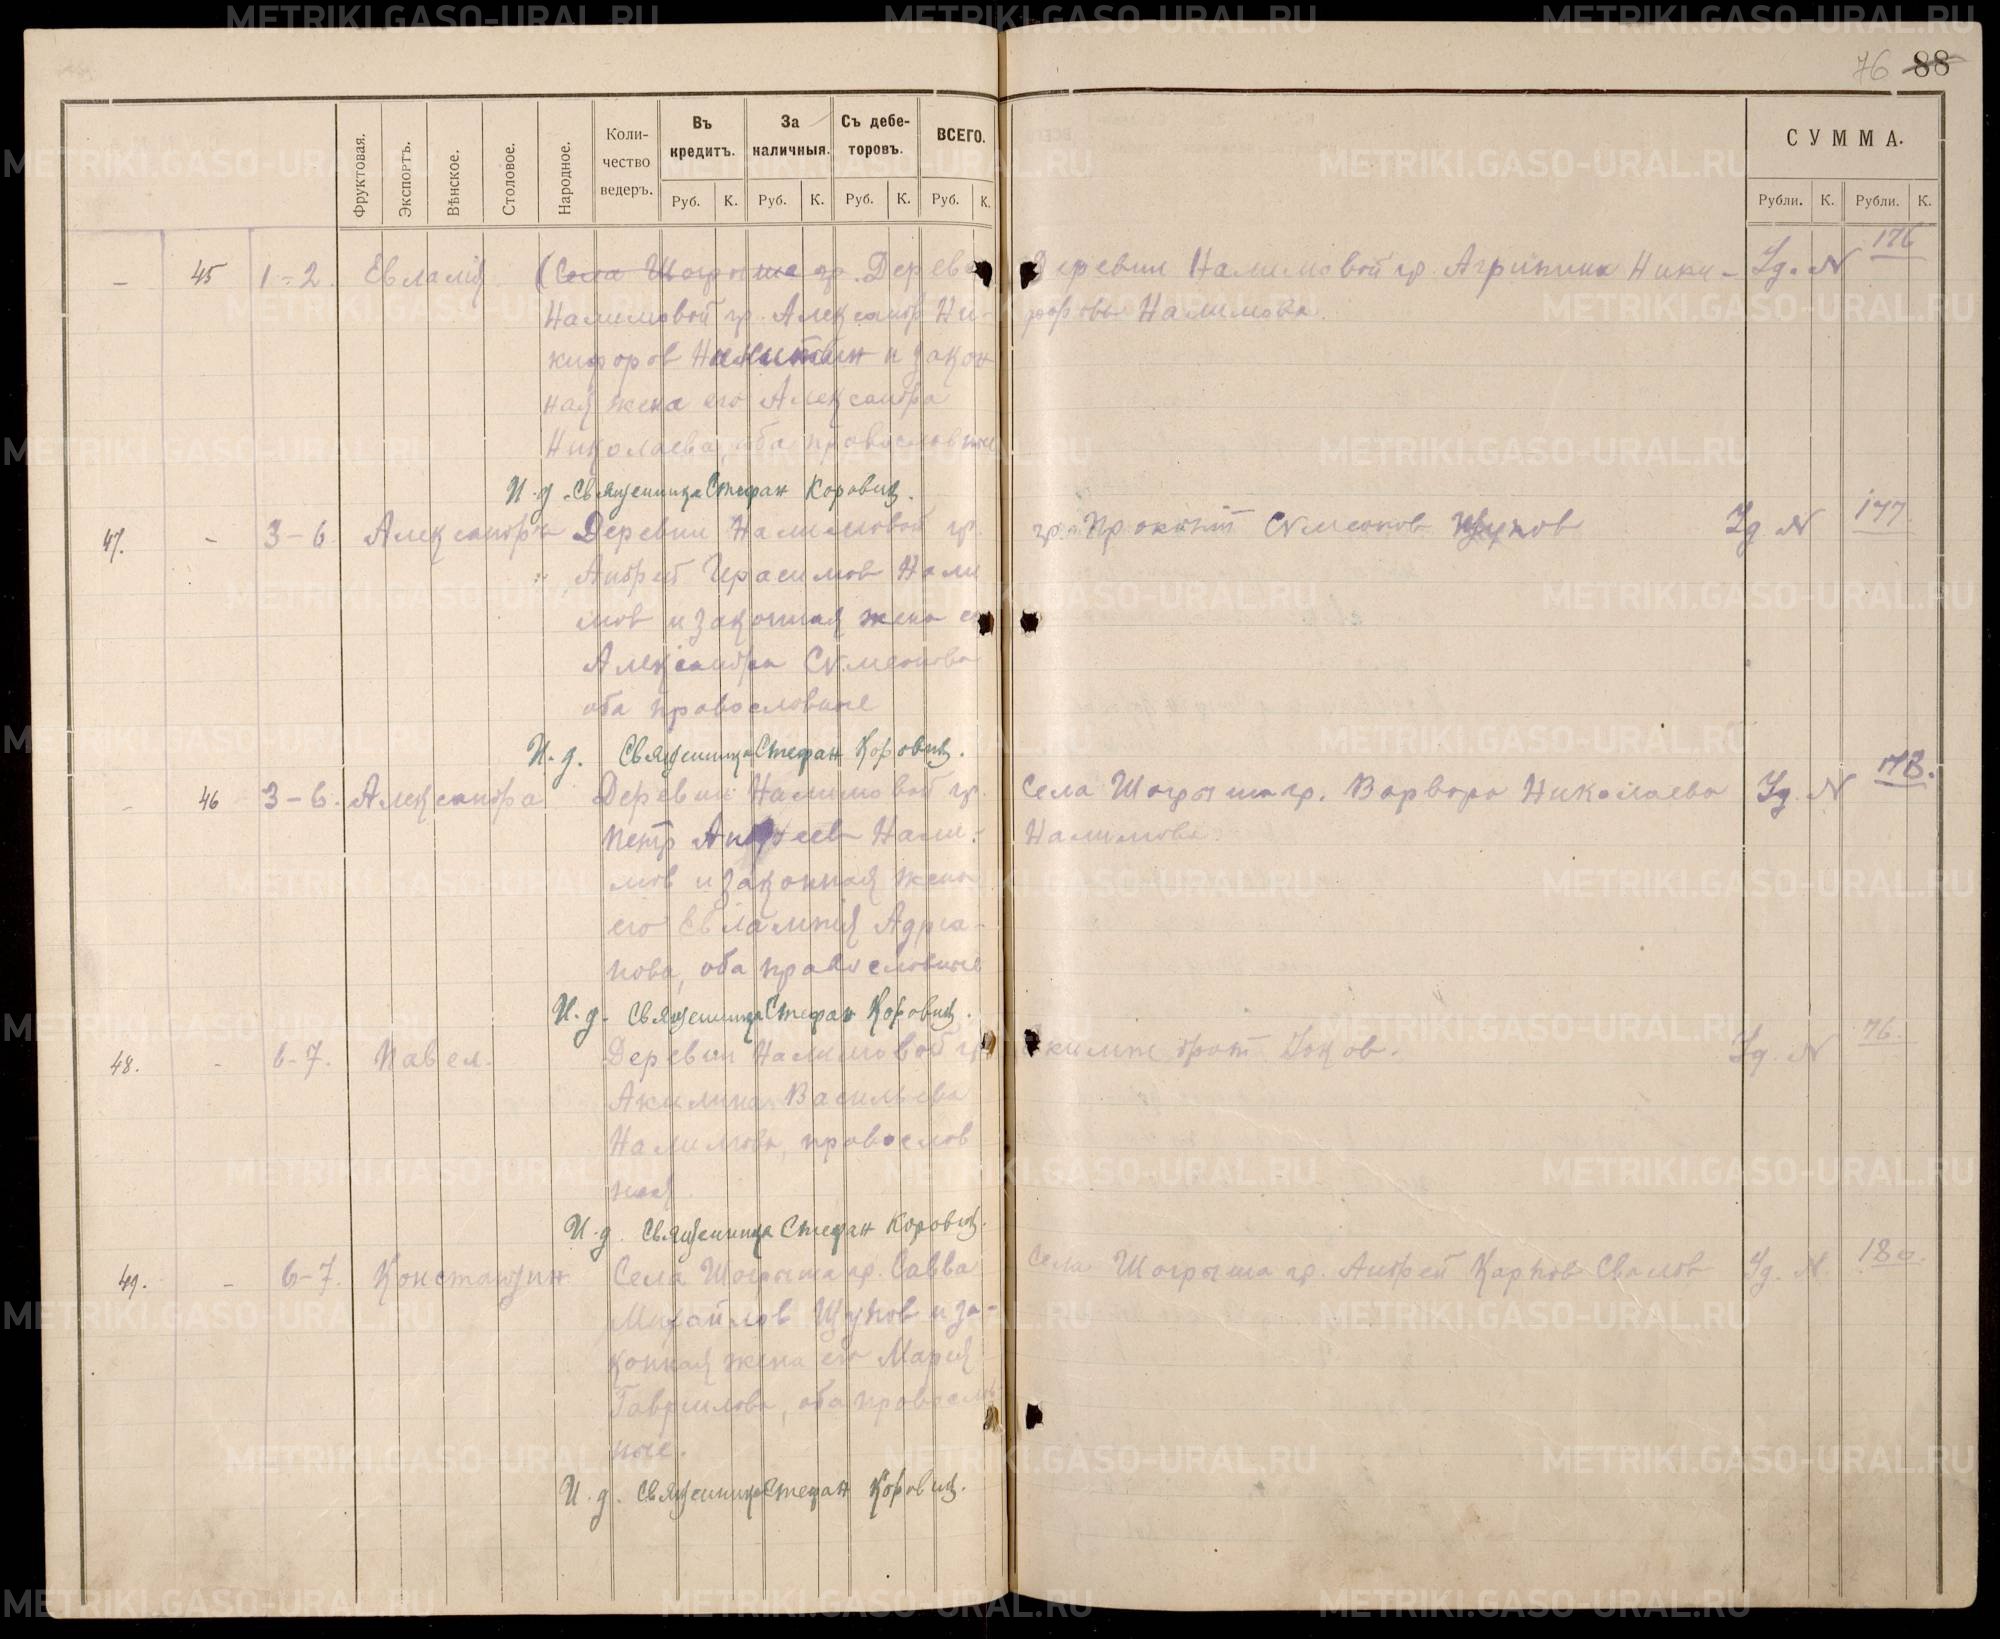 76 88
Фруктовая.
Экспортъ.
Вѣнское.
Столовое.
Народное.
Коли-
чество
ведеръ.
Въ
кредитъ.
За
наличныя.
Съ дебе-
торовъ.
ВСЕГО.
Руб. К. Руб. К. Руб. К. Руб. К.
СУММА.
Рубли. К. Рубли. К.
– 45 1-2. Евлалия (Села Шогрыша гр. Дерев
Налимовой гр. Александр Ни-
кифоров и закон
ная жена его Александра
Николаева, оба православные
И. д. Священника Стефан Коровин.
Деревни Налимовой гр. Агрипина Ники-
форовы Налимова.
176
47. – 3-6 Александра Деревни Налимовой гр.
Андрей Герасимов Нали
мов и законная жена е
Александра Симеонова
оба православные
И. д. Священника Стефан Коровин.
гр. Прокопий Симеонов Щупов
177
– 46 3-6. Александра Деревни Налимовой гр.
Петр Андреев Нали-
мов и законная жена
его Евлампия Адриа-
нова, оба православные
И. д. Священника Стефан Коровин.
Села Шогрыша гр. Варвара Николаева
Налимова.
178.
48. – 6-7. Павел. Деревни Налимовой гр
Акилина Васильева
Налимова, православ
ная.
И. д. Священника Стефан Коровин.
76.
49. – 6-7. Константин Села Шогрыша гр. Савва
Михайлов Щупов и за-
конная жена его Мария
Гаврилова, оба православ
ные.
И. д. Священника Стефан Коровин.
Села Шогрыша гр. Андрей Карпов Свалов
180.
METRIKI.GASO-URAL.RU